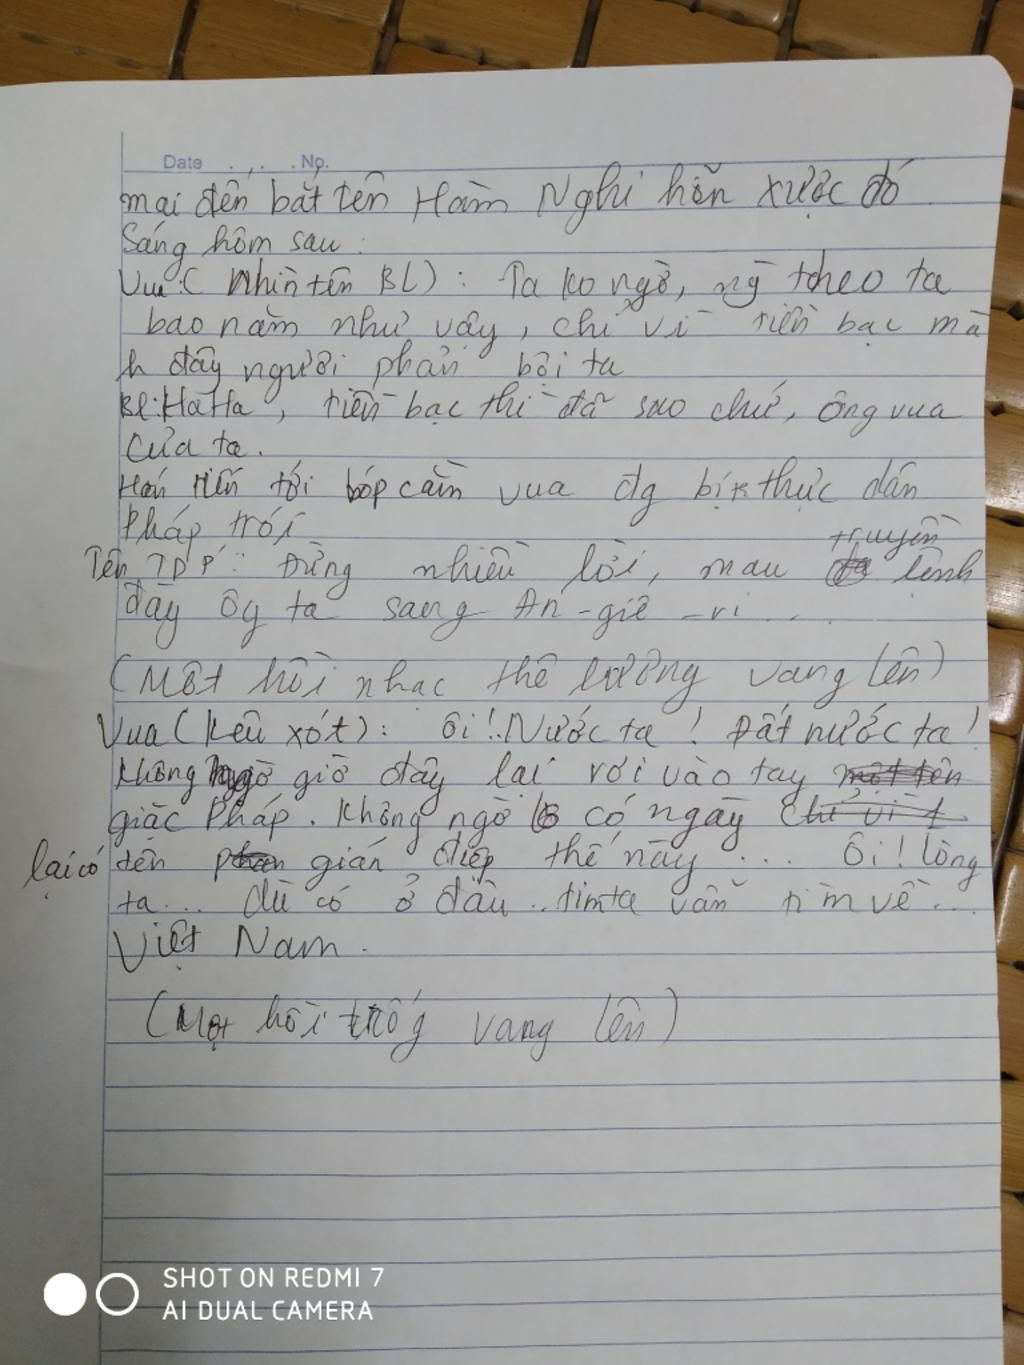 Date . , . . No.
mai đến bắt tên Hàm Nghi hỗn xược đó
Sáng hôm sau :
Vua ( Nhìn tên BL) : Ta ko ngờ, ng theo ta
bao năm như vậy, chỉ vì tiền bạc mà
đây người phản bội ta
BL: HaHa, tiền bạc thì đã sao chứ, ông vua
của ta.
Hắn tiến tới bóp cằm vua đg bị thực dân
Pháp trói
truyền
Tên TDP : Đừng nhiều lời, mau lệnh
đày ôg ta sang An-giê-ri...
(Một hồi nhạc thê lương vang lên)
Vua (kêu xót) : Ôi! Nước ta! Đất nước ta!
Không ngờ giờ đây lại rơi vào tay
giặc Pháp. Không ngờ có ngày
lại có tên gián điệp thế này... Ôi! lòng
ta... dù có ở đâu.. tim ta vẫn tìm về...
Việt Nam.
(Một hồi trống vang lên)
SHOT ON REDMI 7
AI DUAL CAMERA